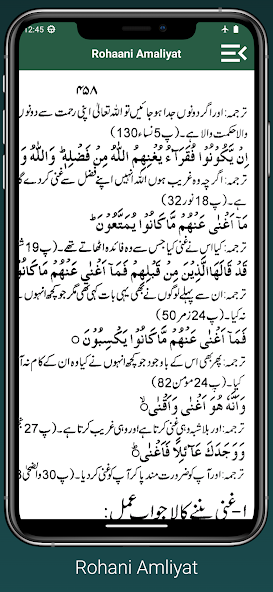 12:45
Rohaani Amaliyat
۴۵۸
ترجمہ: اور اگر دونوں جدا ہو جائیں تو اللہ تعالیٰ اپنی رحمت سے دونوں
والا حکمت والا ہے۔ (پ5 نساء 130)
اِنْ یَّکُوْنُوْا فُقَرَآءَ یُغْنِهِمُ اللّٰهُ مِنْ فَضْلِهٖ ؕ وَاللّٰهُ وَا
ترجمہ: اگرچہ وہ غریب ہوں اللہ انہیں اپنے فضل سے غنی کر دے گا
ہے۔ (پ18 نور 32)
مَاۤ اَغْنٰی عَنْهُمْ مَّا کَانُوْا یُمَتَّعُوْنَ ؕ
ترجمہ: کیا اس نے غنی کیا جس سے وہ فائدہ اٹھاتے تھے۔ (پ19
قَدْ قَالَهَا الَّذِیْنَ مِنْ قَبْلِهِمْ فَمَاۤ اَغْنٰی عَنْهُمْ مَّا کَانُوْا
ترجمہ: ان سے پہلے لوگوں نے بھی یہی بات کہی تھی مگر جو کچھ انہوں
نہ کیا۔ (پ24 زمر 50)
فَمَاۤ اَغْنٰی عَنْهُمْ مَّا کَانُوْا یَکْسِبُوْنَ ○
ترجمہ: پھر بھی اس کے باوجود جو کچھ انہوں نے کیا وہ ان کے کام نہ آ
کیا۔ (پ24 مؤمن 82)
وَاَنَّهٗ هُوَ اَغْنٰی وَاَقْنٰی ۙ
ترجمہ: اور بلاشبہ وہی غنی کرتا ہے اور وہی غریب کرتا ہے۔ (پ27
وَوَجَدَکَ عَآئِلًا فَاَغْنٰی ؕ
ترجمہ: اور آپ کو ضرورت مند پا کر آپ کو غنی کر دیا۔ (پ30 والضحیٰ 8
۱۔ غنی بننے کا لاجواب عمل:
Rohani Amliyat